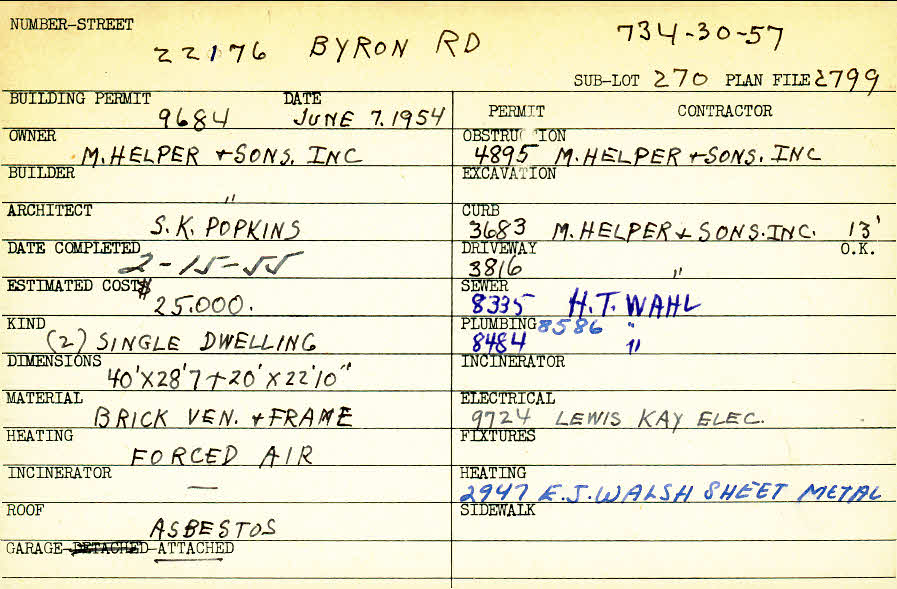 NUMBER-STREET
22176 BYRON RD
734-30-57
SUB-LOT 270 PLAN FILE 2799
BUILDING PERMIT DATE
9684 JUNE 7.1954
OWNER
M.HELPER + SONS. INC
BUILDER
"
ARCHITECT
S.K. POPKINS
DATE COMPLETED
2-15-55
ESTIMATED COST$
25.000.
KIND
(2) SINGLE DWELLING
DIMENSIONS
40'X28'7+20'X22'10"
MATERIAL
BRICK VEN. + FRAME
HEATING
FORCED AIR
INCINERATOR
—
ROOF
ASBESTOS
GARAGE-DETACHED-ATTACHED
PERMIT CONTRACTOR
OBSTRUCTION
4895 M.HELPER + SONS. INC
EXCAVATION
CURB
3683 M.HELPER & SONS.INC. 13'
DRIVEWAY O.K.
3816 "
SEWER
8335 H.T. WAHL
PLUMBING 8586 "
8484 "
INCINERATOR
ELECTRICAL
9724 LEWIS KAY ELEC.
FIXTURES
HEATING
2947 E.J. WALSH SHEET METAL
SIDEWALK